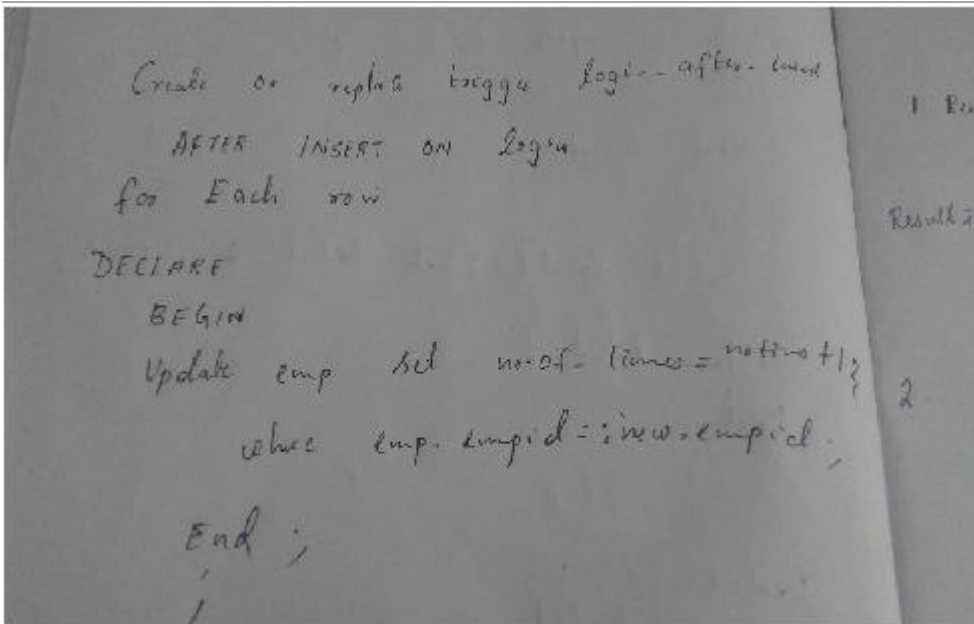 Create or replace trigger login-after-insert
AFTER INSERT ON login
for Each row
DECLARE
BEGIN
Update emp set no-of-times = +1;
where emp.empid = :new.empid;
End ;
/
1
Result
2